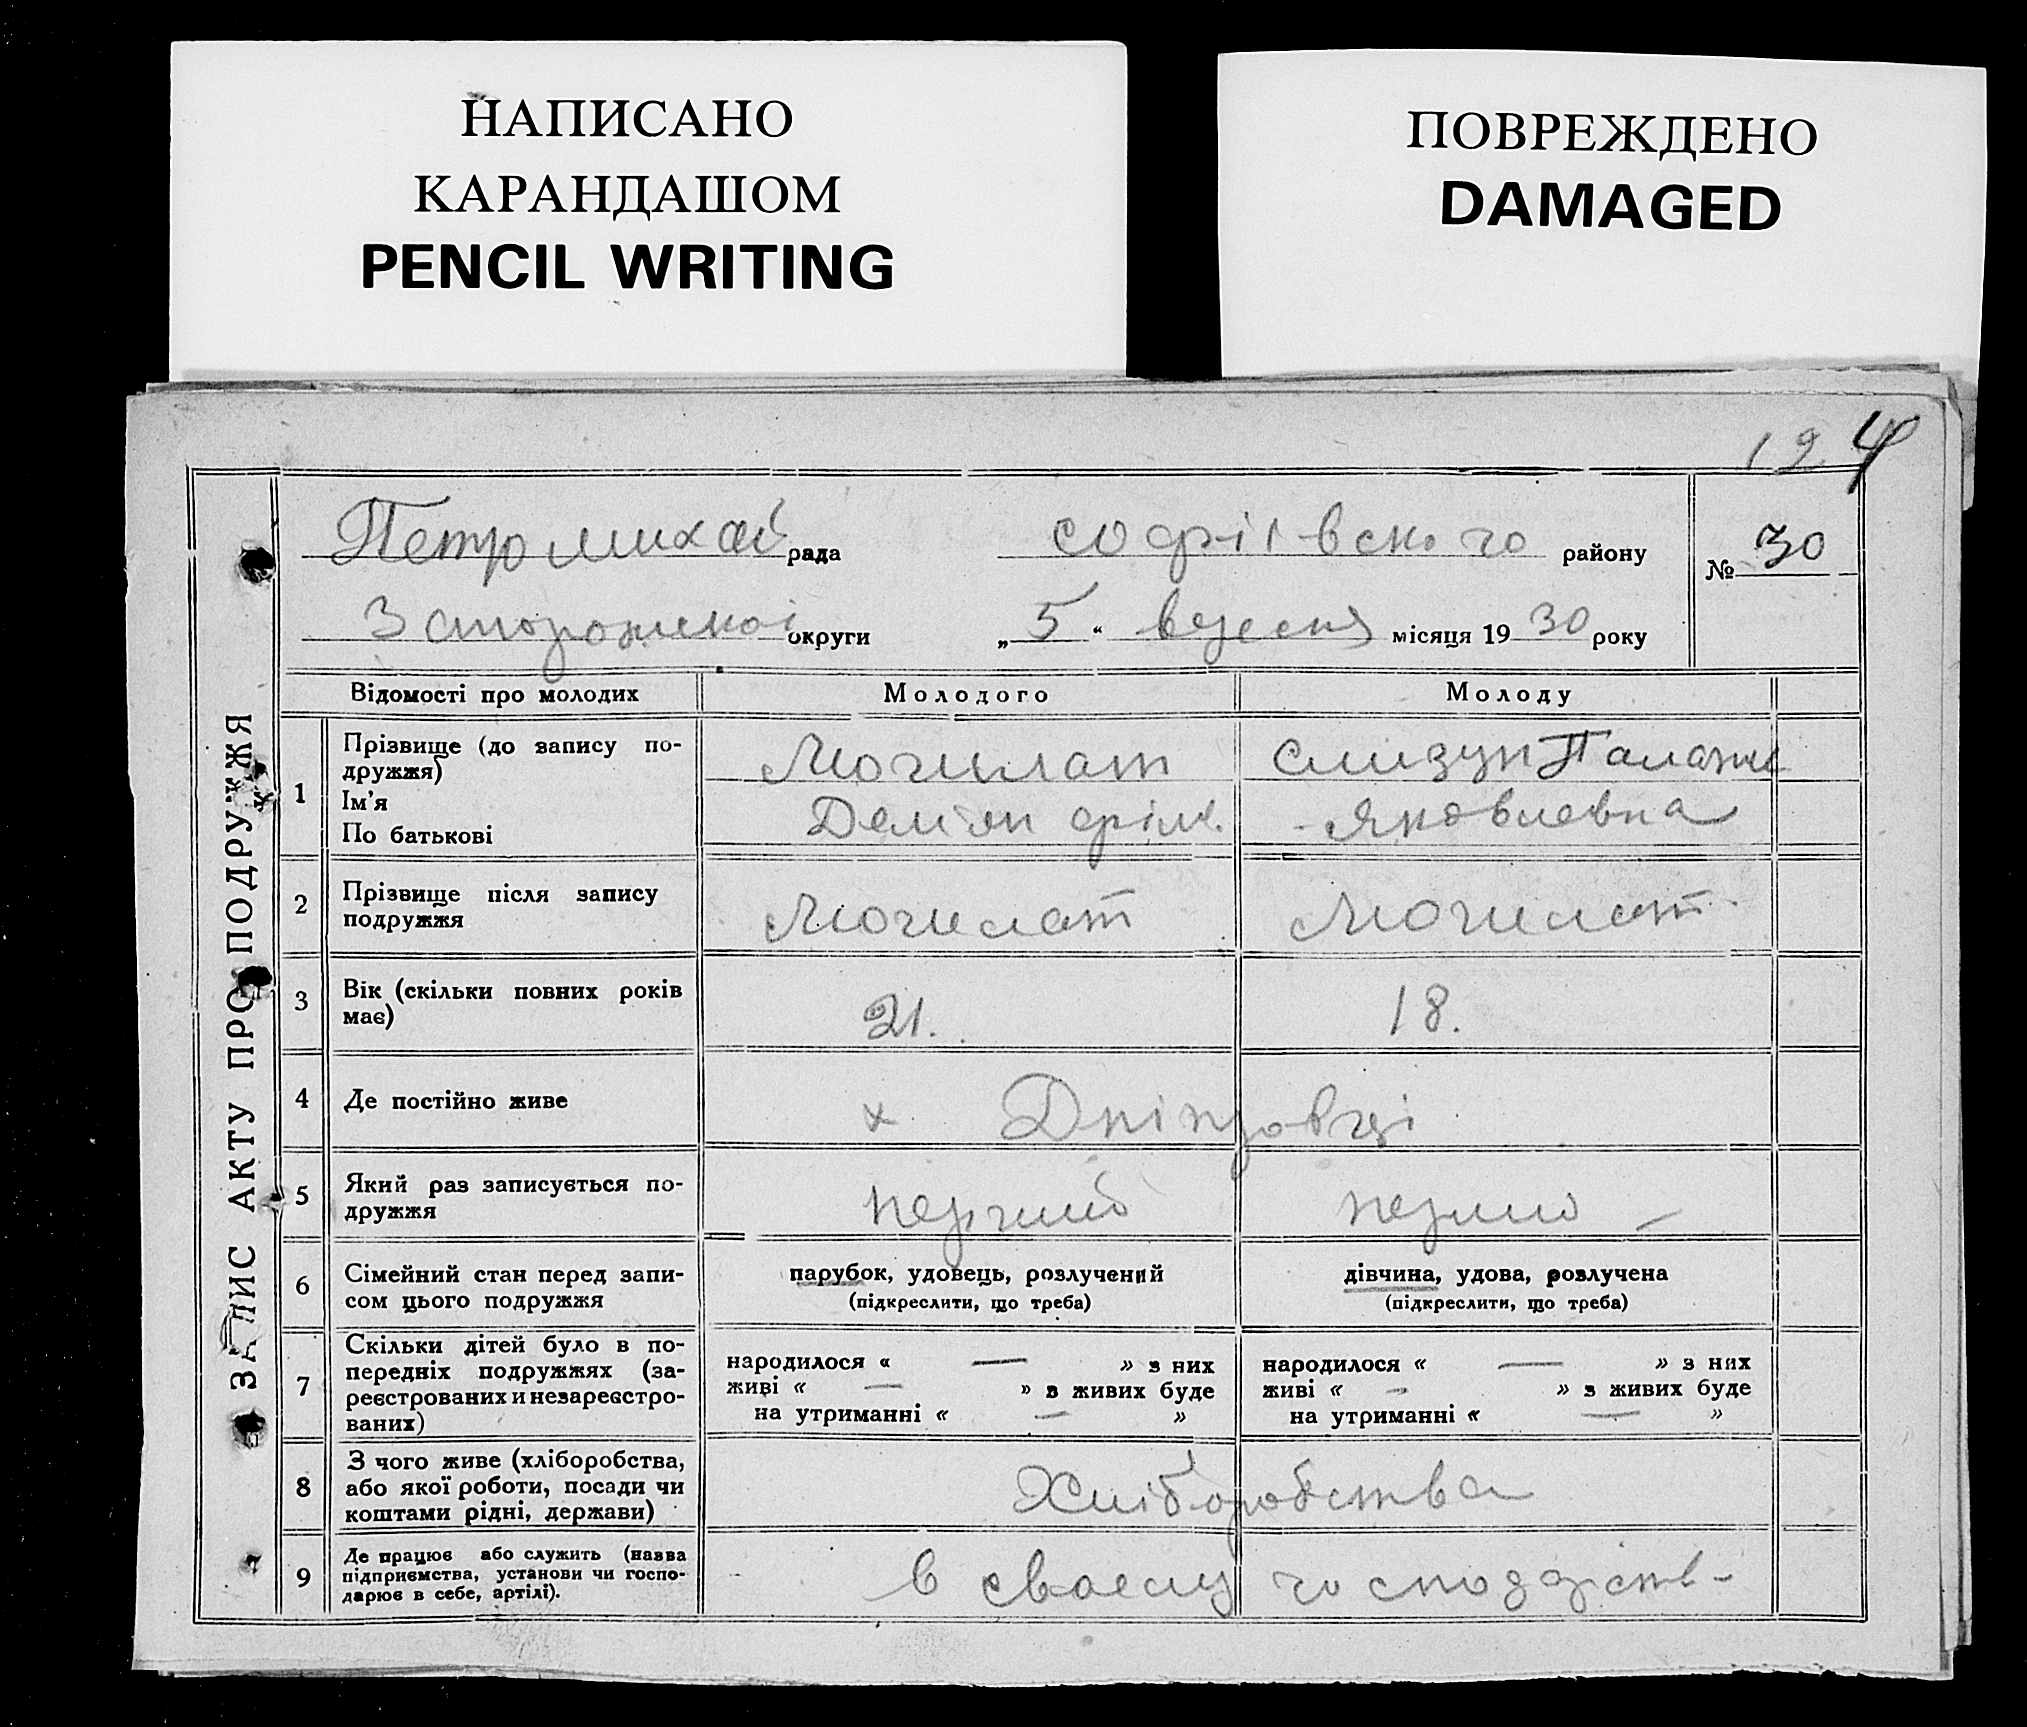 НАПИСАНО
КАРАНДАШОМ
PENCIL WRITING
ПОВРЕЖДЕНО
DAMAGED
124
ЗАПИС АКТУ ПРО ПОДРУЖЖЯ
Петромихай рада софіівского району № 30
Запорожскоі округи „ 5 “ вересня місяця 19 30 року
Відомості про молодих Молодого Молоду
1 Прізвище (до запису по-
дружжя)
Ім'я
По батькові
Могилат
Дем'ян
Слизун Палажк
Яковлевна
2 Прізвище після запису
подружжя
Могилат Могилат
3 Вік (скільки повних років
має)
21. 18.
4 Де постійно живе
х Дніпровці
5 Який раз записується по-
дружжя
перший перший –
6 Сімейний стан перед запи-
сом цього подружжя
парубок, удовець, розлучений
(підкреслити, що треба)
дівчина, удова, розлучена
(підкреслити, що треба)
7 Скільки дітей було в по-
передніх подружжях (за-
реєстрованих и незареєстро-
ваних)
народилося « — » з них
живі « — » з живих буде
на утриманні « — »
народилося « — » з них
живі « – » з живих буде
на утриманні « — »
8 З чого живе (хліборобства,
або якої роботи, посади чи
коштами рідні, держави)
Хліборобства
9 Де працює або служить (назва
підприємства, установи чи госпо-
дарює в себе, артілі).
в своему господарств-